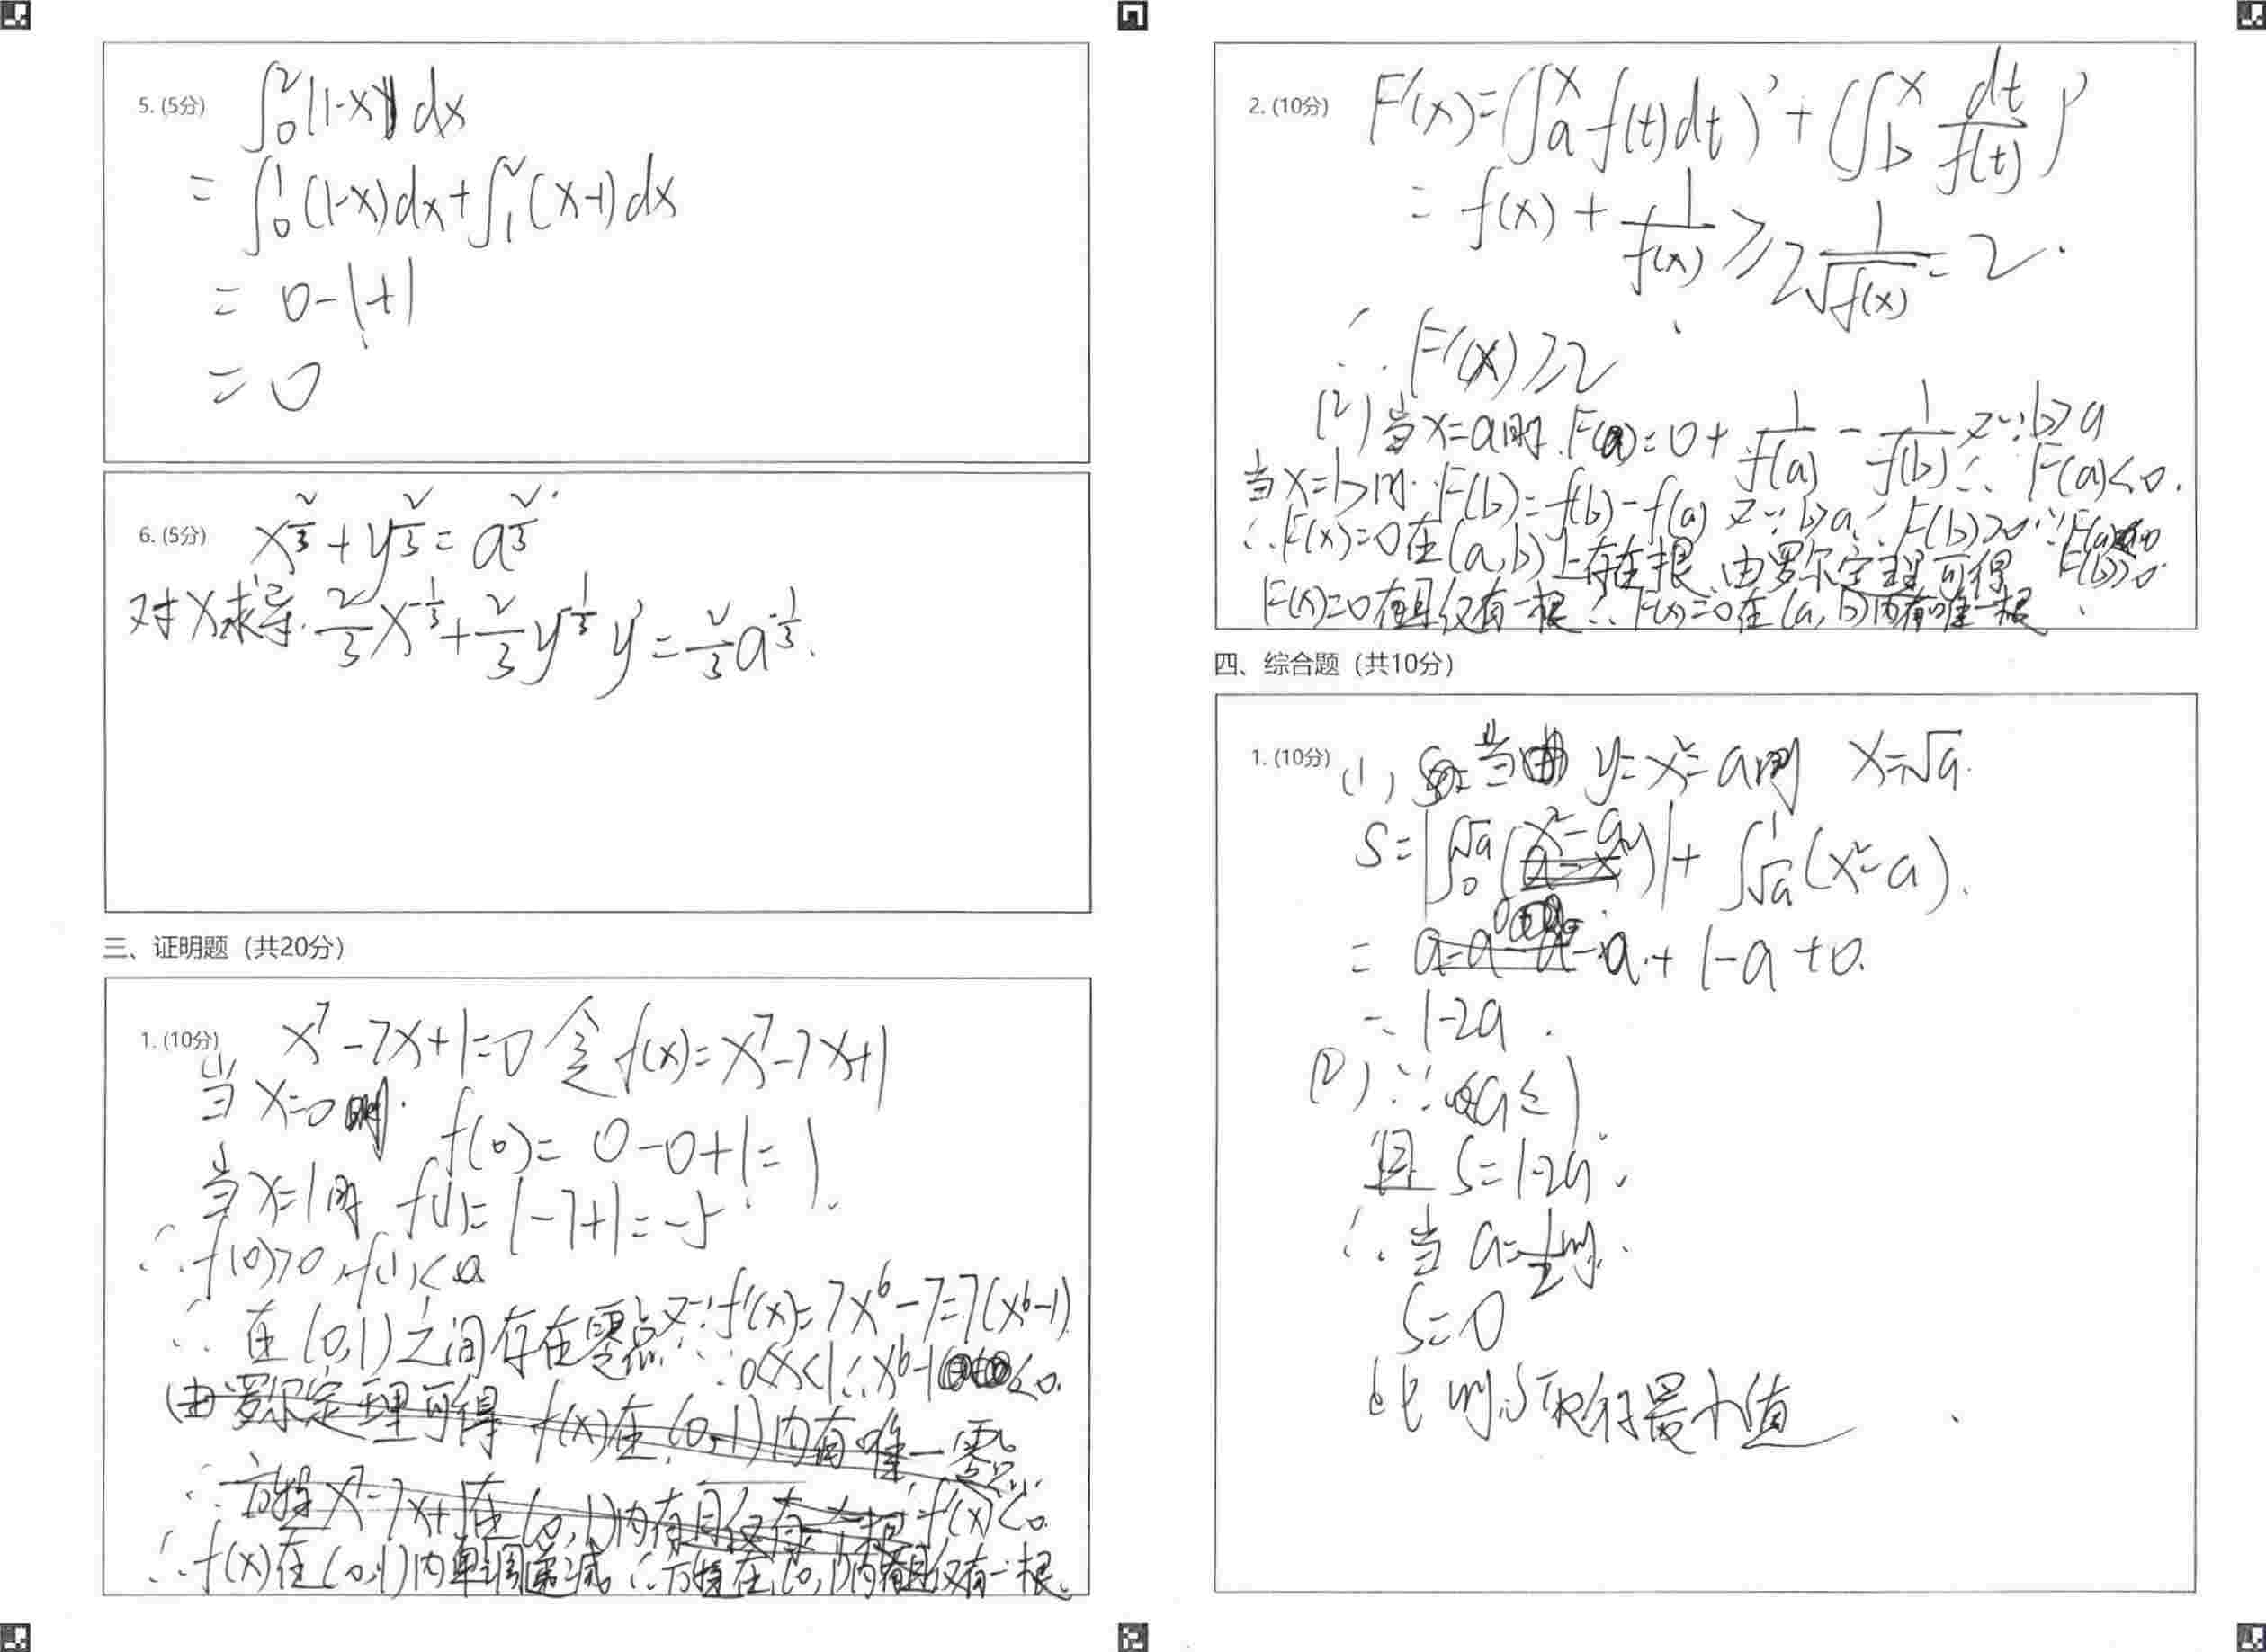 5. (5分) ∫₀²|1-x|dx
= ∫₀¹(1-x)dx+∫₁²(x-1)dx
= 0-1+1
= 0
6. (5分) x^{2/3}+y^{2/3}=a^{2/3}
对x求导. 2/3 x^{-1/3}+2/3 y^{-1/3} y'=2/3 a^{-1/3}.
三、证明题（共20分）
1. (10分) x⁷-7x+1=0 令f(x)=x⁷-7x+1
当x=0时.
f(0)= 0-0+1=1
当x=1时 f(1)=1-7+1=-5.
∴f(0)>0,f(1)<0
∴在(0,1)之间存在零点 又∵f'(x)=7x⁶-7=7(x⁶-1)
∵0<x<1∴x⁶-1<0.
由罗尔定理可得 f(x)在(0,1)内有唯一零点
∴方程x⁷-7x+1在(0,1)内有且仅有一根 ∴f'(x)<0
∴f(x)在(0,1)内单调递减 ∴方程在(0,1)内有且仅有一根.
2. (10分) F'(x)=(∫ₐˣf(t)dt)'+(∫_b^x dt/f(t))'
= f(x)+1/f(x)≥2 1/√f(x)=2.
∴F'(x)≥2
(2)当x=a时.F(a)=0+1/f(a)-1/f(b) 又∵b>a
∴F(a)<0.
当x=b时.F(b)=f(b)-f(a) 又∵b>a ∴F(b)>0∵F(a)<0
F(b)>0
∴F(x)=0在(a,b)上存在根 由罗尔定理可得
F(x)=0有且仅有一根∴F(x)=0在(a,b)内有唯一根
四、综合题（共10分）
1. (10分) (1) 当 y=x²=a时 x=√a.
S=|∫₀^{√a}(x²-a)|+∫_{√a}^1(x²-a).
= -a+1-a+0.
= 1-2a.
(2)∵ a≤1
且 S=1-2a.
∴当a=1/2时.
S=0
此时S取得最小值